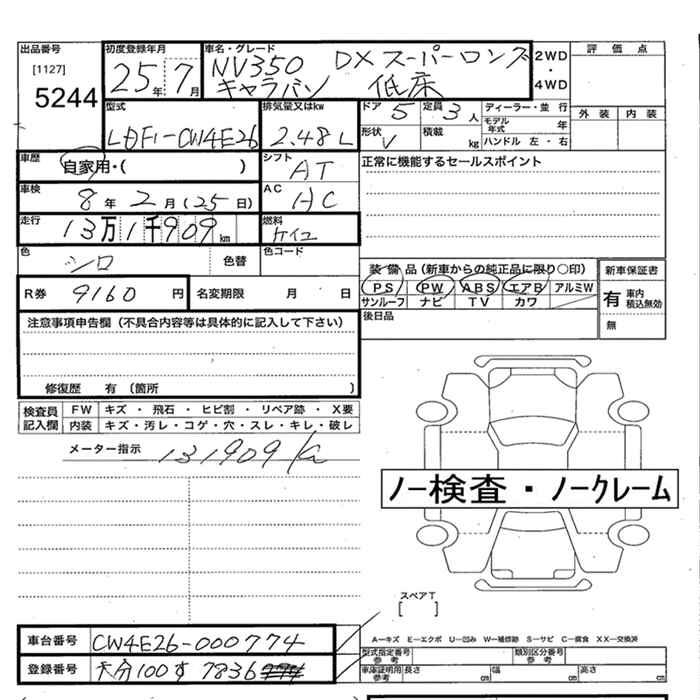 出品番号
[1127]
5244
初度登録年月
25年7月
車名・グレード
NV350 DXスーパーロング
キャラバン 低床
2WD
・
4WD
評価点
外装 内装
型式
LDF-CW4E26
排気量又はkw
2.48L
ドア 5
定員 3人
形状 V
積載 kg
ディーラー・並行
モデル年式 年
ハンドル 左・右
車歴
自家用・( )
シフト
AT
正常に機能するセールスポイント
車検
8年2月(25日)
AC
AC
走行
13万1千909km
燃料
ケイユ
色
シロ
色替
色コード
装備品(新車からの純正品に限り○印)
PS PW ABS エアB アルミW
サンルーフ ナビ TV カワ
新車保証書
有 車内積込無効
無
R券 9160円
名変期限 月 日
後日品
注意事項申告欄(不具合内容等は具体的に記入して下さい)
修復歴 有 〔箇所 〕
検査員記入欄
FW キズ・飛石・ヒビ割・リペア跡・X要
内装 キズ・汚レ・コゲ・穴・スレ・キレ・破レ
メーター指示 131909K
ノー検査・ノークレーム
スペアT
[ ]
車台番号 CW4E26-000774
登録番号 大分100す7836
A－キズ E－エクボ U－凹み W－補修跡 S－サビ C－腐食 XX－交換済
型式指定番号 参考
類別区分番号 参考
車庫証明用参考 長さ cm 幅 cm 高さ cm